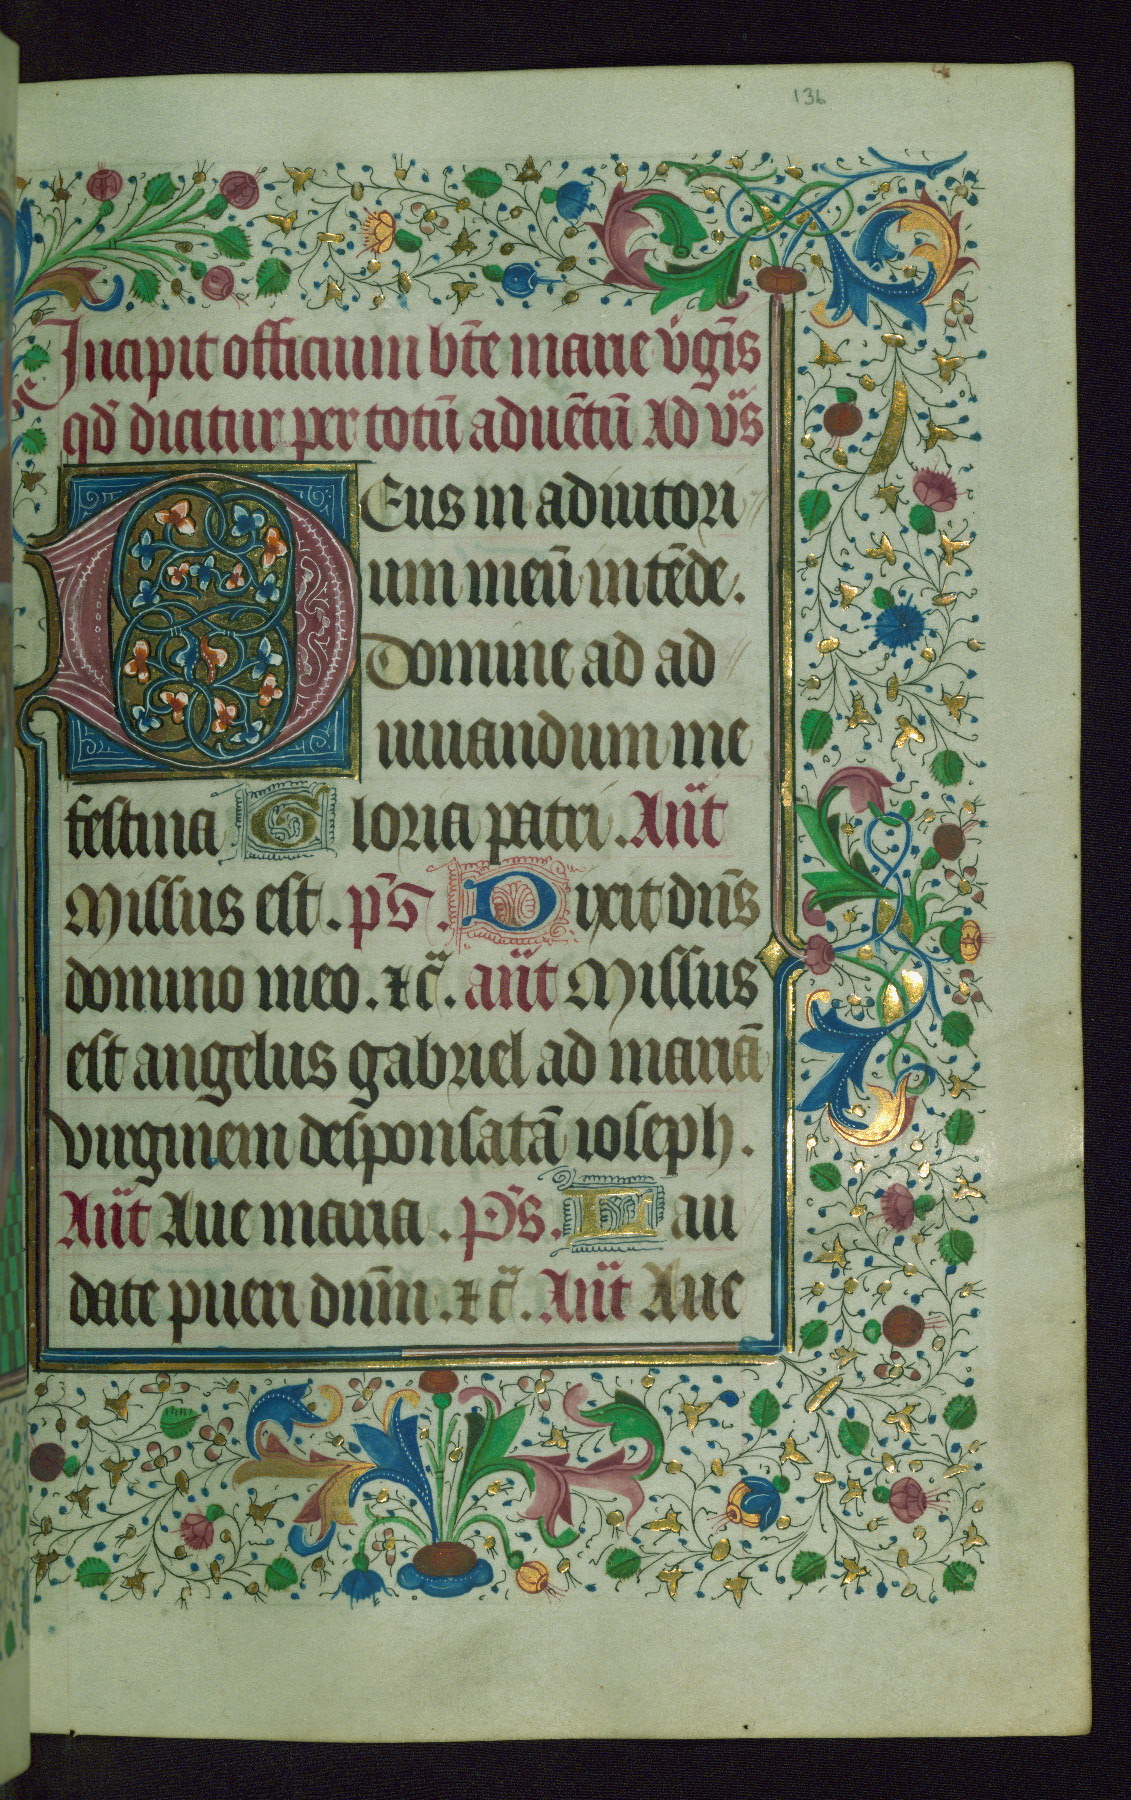 136
Incipit officium bt̄e marie v̓gīs
qd̓ dicitur per totū aduētū Ad vs̄
DEus in adiutori
um meū intēde.
Domine ad ad
iuuandum me
festina Gloria patri. An̄t
Missus est. ps̄. Dixit dn̄s
domino meo. ⁊c̄. an̄t Missus
est angelus gabriel ad mariā
virginem desponsatā ioseph.
An̄t Aue maria. Ps̄. Lau
date pueri dn̄m. ⁊c̄. An̄t Aue